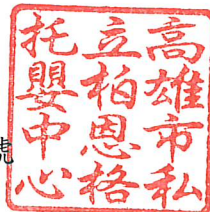 高雄市私
立柏恩格
托嬰中心
號